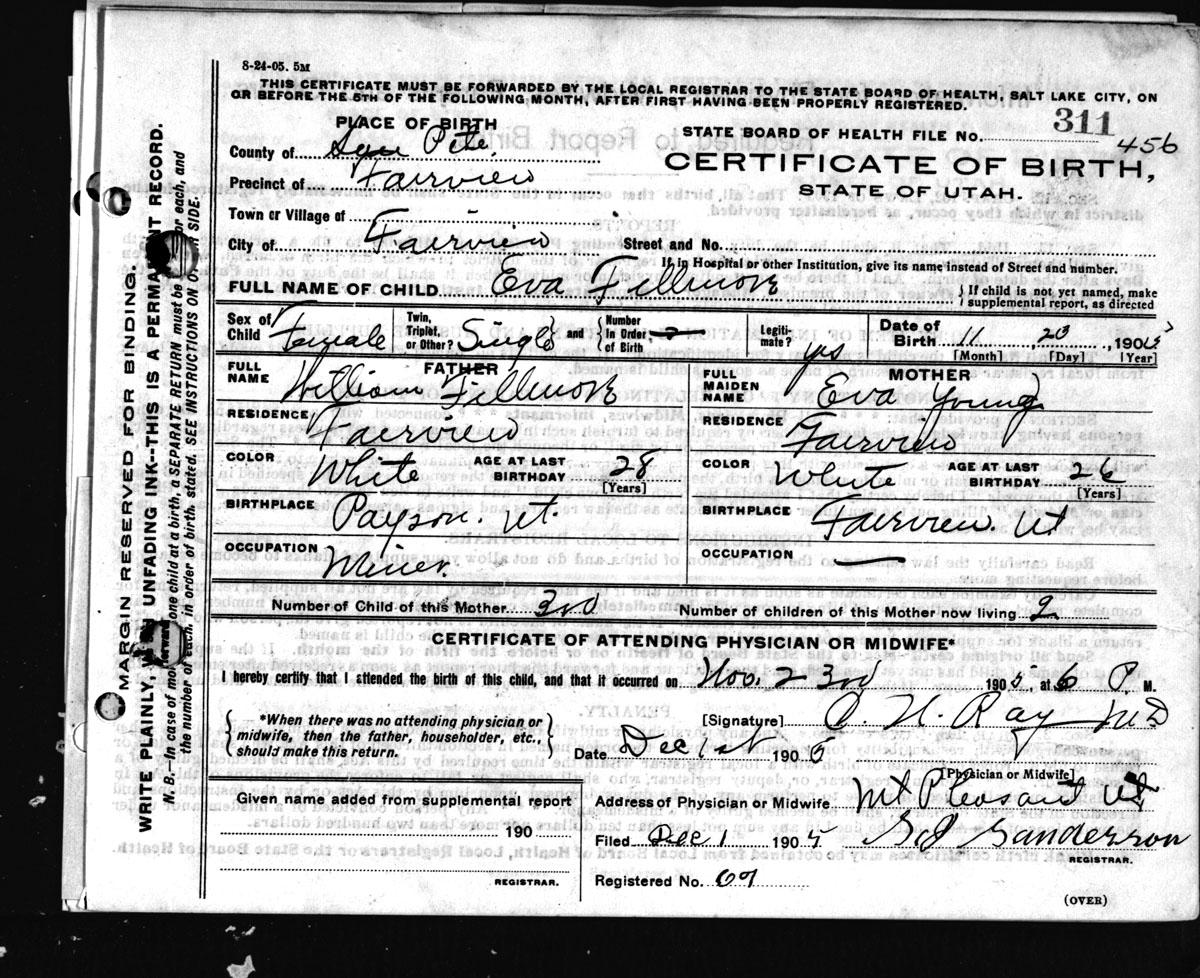 8-24-05. 5M
THIS CERTIFICATE MUST BE FORWARDED BY THE LOCAL REGISTRAR TO THE STATE BOARD OF HEALTH, SALT LAKE CITY, ON
OR BEFORE THE 5TH OF THE FOLLOWING MONTH, AFTER FIRST HAVING BEEN PROPERLY REGISTERED.
PLACE OF BIRTH
STATE BOARD OF HEALTH FILE No. 311 456
County of San Pete.
CERTIFICATE OF BIRTH,
Precinct of Fairview
STATE OF UTAH.
Town or Village of
City of Fairview Street and No.
If in Hospital or other Institution, give its name instead of Street and number.
FULL NAME OF CHILD Eva Fillmore { If child is not yet named, make
supplemental report, as directed
Sex of Child Female
Twin, Triplet, or Other? Single } and { Number In Order of Birth
Legiti-mate? yes
Date of Birth 11 23, 1905
[Month] [Day] [Year]
FATHER
FULL NAME William Fillmore
RESIDENCE Fairview
COLOR White AGE AT LAST BIRTHDAY 28
[Years]
BIRTHPLACE Payson. Ut.
OCCUPATION Miner.
MOTHER
FULL MAIDEN NAME Eva Young
RESIDENCE Fairview
COLOR White AGE AT LAST BIRTHDAY 26
[Years]
BIRTHPLACE Fairview. Ut
OCCUPATION
Number of Child of this Mother 3rd Number of children of this Mother now living 2
CERTIFICATE OF ATTENDING PHYSICIAN OR MIDWIFE*
I hereby certify that I attended the birth of this child, and that it occurred on Nov. 23rd 1905, at 6 P. M.
{ *When there was no attending physician or
midwife, then the father, householder, etc.,
should make this return. }
[Signature] O. H. Ray MD
Date Dec 1st 1905
[Physician or Midwife]
Given name added from supplemental report
190
REGISTRAR.
Address of Physician or Midwife Mt Pleasant Ut.
Filed Dec 1 1905 Sanderson
REGISTRAR.
Registered No. 67
(OVER)
MARGIN RESERVED FOR BINDING.
WRITE PLAINLY, UNFADING INK--THIS IS A PERMANENT RECORD.
N. B.--In case of more one child at a birth, a SEPARATE RETURN must be for each, and
the number of each, in order of birth, stated. SEE INSTRUCTIONS ON SIDE.